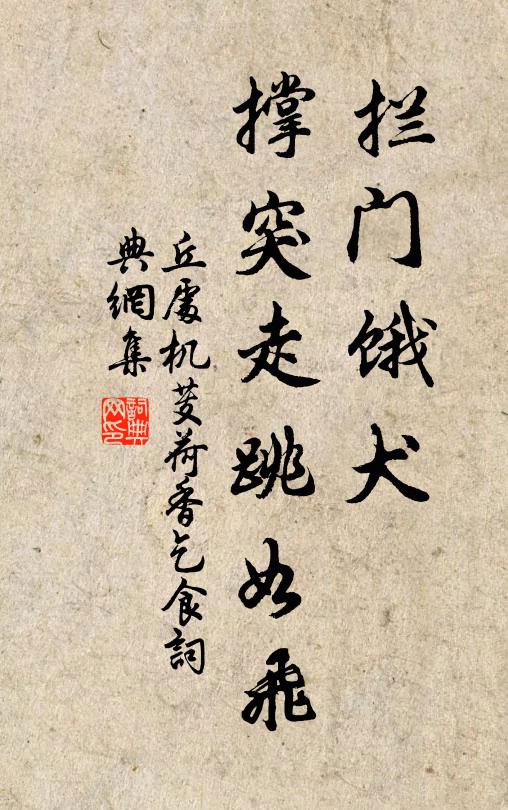 拦门饿犬
撑突走跳如飞
丘處机芰荷香乞食詞
典網集
詞典
网印